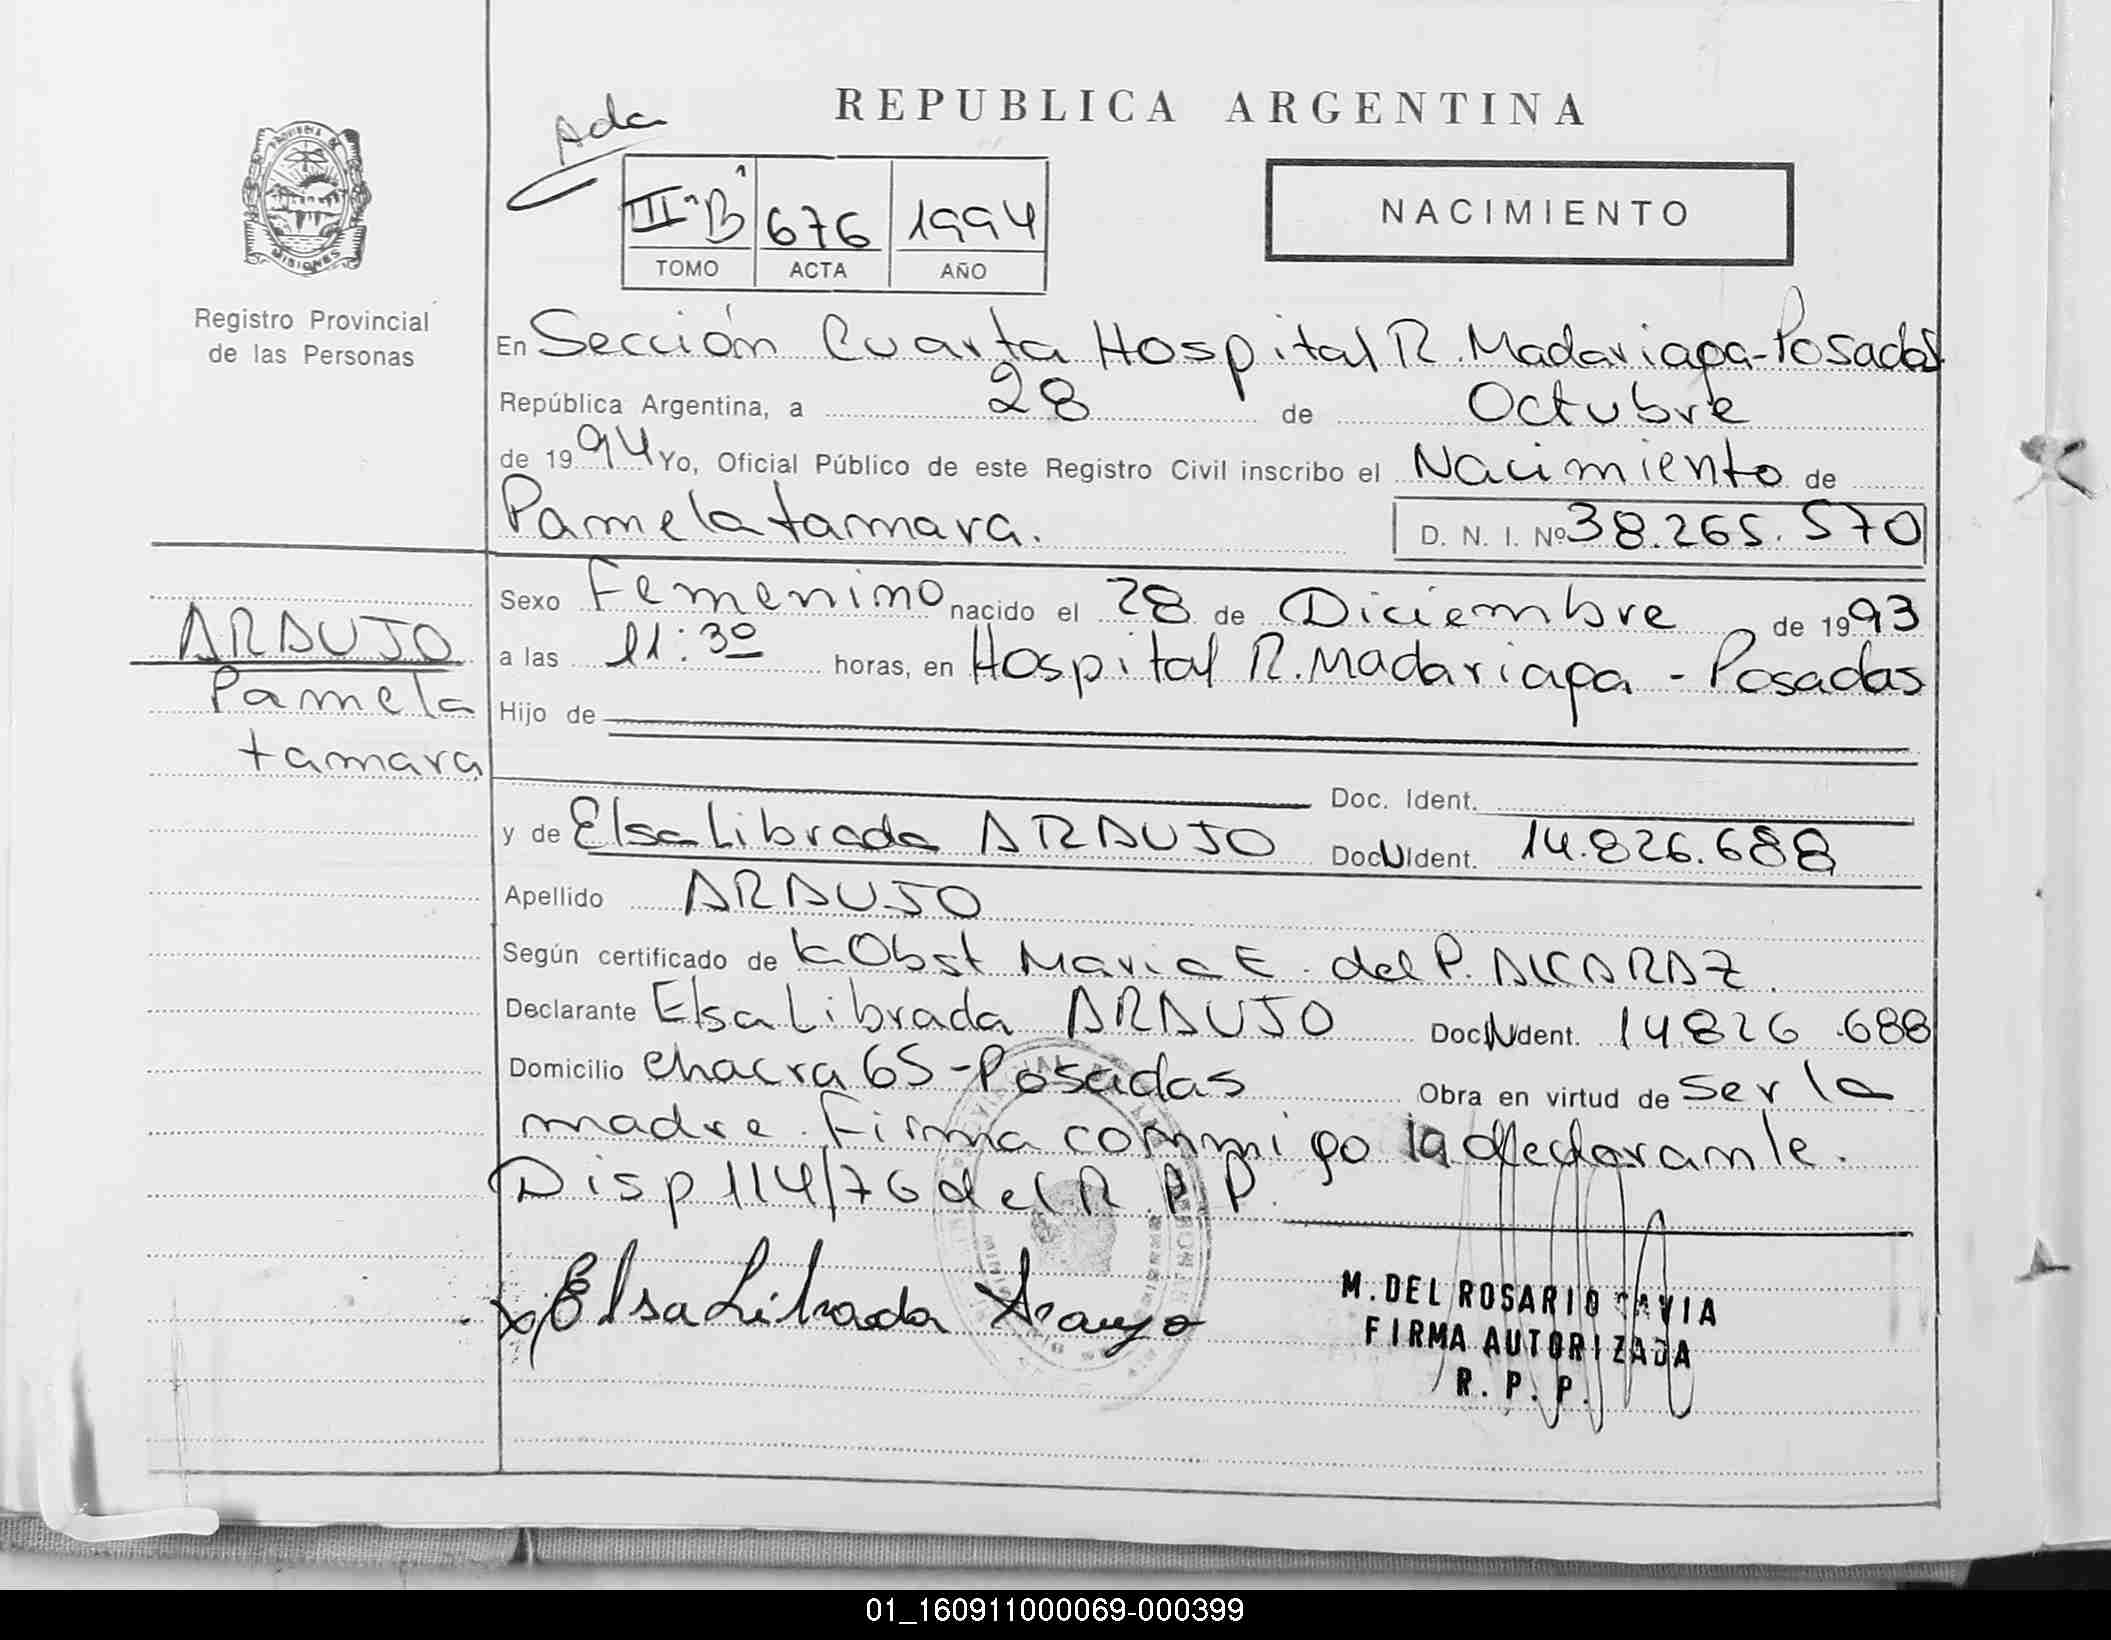 REPUBLICA ARGENTINA
Ada
III "B" 676 1994
TOMO ACTA AÑO
NACIMIENTO
MISIONES
Registro Provincial
de las Personas
En Sección Cuarta Hospital R. Madariaga-Posadas
República Argentina, a 28 de Octubre
de 1994 Yo, Oficial Público de este Registro Civil inscribo el Nacimiento de
Pamela tamara. D. N. I. Nº 38.265.570
Sexo Femenino nacido el 28 de Diciembre de 1993
a las 11:30 horas, en Hospital R. Madariaga - Posadas
Hijo de
ARAUJO
Pamela
tamara
Doc. Ident.
y de Elsa Librada ARAUJO Doc. Ident. 14.826.688
Apellido ARAUJO
Según certificado de K Obst Maria E. del P. ALCARAZ.
Declarante Elsa Librada ARAUJO Doc. Ident. 14826.688
Domicilio chacra 65-Posadas Obra en virtud de ser la
madre. Firma conmigo la declarante.
Disp 114/76 del R.P.P.
Elsa Librada Araujo
M. DEL ROSARIO GAVIA
FIRMA AUTORIZADA
R. P. P.
01_160911000069-000399